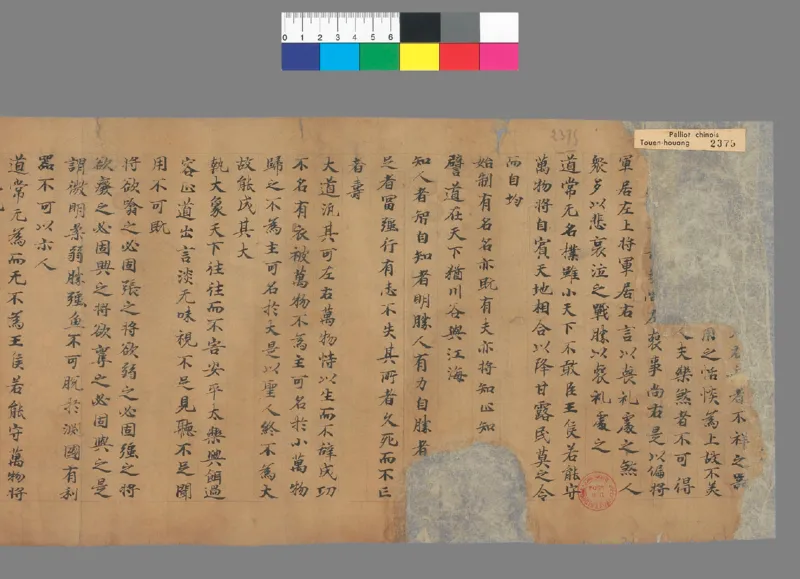 Pelliot chinois
Touen-houang 2375
0 1 2 3 4 5 6
2375
者不祥之器
用之恬惔為上故不美
人夫樂煞者不可得
喪事尚右是以偏將
軍居左上將軍居右言以喪礼處之煞人
衆多以悲哀泣之戰勝以喪礼處之
道常无名樸雖小天下不敢臣王侯若能守
萬物將自賓天地相合以降甘露民莫之令
而自均
始制有名名亦既有夫亦將知止知
譬道在天下猶川谷與江海
知人者智自知者明勝人有力自勝者
足者冨強行有志不失其所者久死而不亡
者壽
大道汎其可左右萬物恃以生而不辞成功
不名有衣被萬物不為主可名於小萬物
歸之不為主可名於大是以聖人終不為大
故能成其大
執大象天下往往而不害安平太樂與餌過
客止道出言淡无味視不足見聽不足聞
用不可既
將欲翕之必固張之將欲弱之必固強之將
欲廢之必固興之將欲奪之必固與之是
謂微明柔弱勝強魚不可脫於淵國有利
器不可以示人
道常无為而无不為王侯若能守萬物將